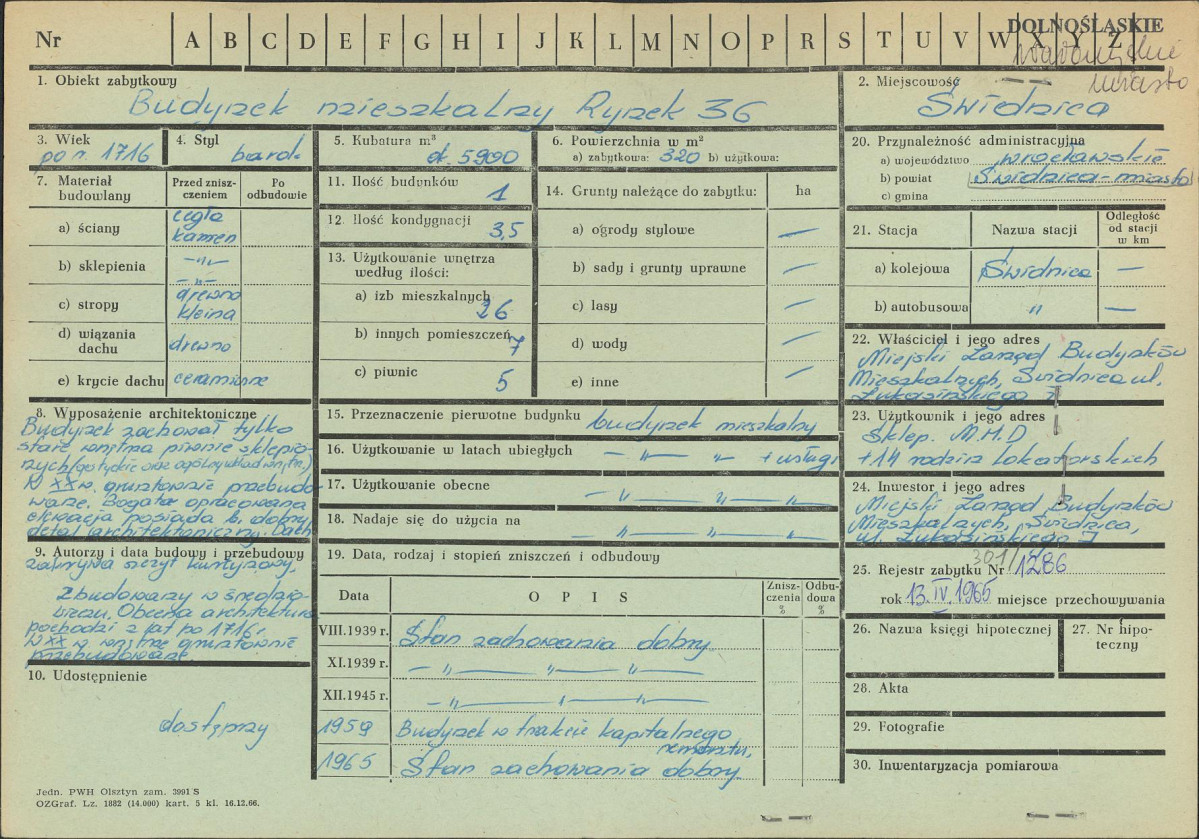 Nr A B C D E F G H I J K L M N O P R S T U V W X Y Z
DOLNOŚLĄSKIE
miasto
1. Obiekt zabytkowy
Budynek mieszkalny Rynek 36
2. Miejscowość
Świdnica
3. Wiek
po r. 1716
4. Styl
barok
5. Kubatura m³
ok. 5990
6. Powierzchnia w m²
a) zabytkowa: 320 b) użytkowa:
7. Materiał budowlany
Przed zniszczeniem
Po odbudowie
a) ściany
cegła
kamień
b) sklepienia
-"-
-"-
c) stropy
drewno
kleina
d) wiązania dachu
drewno
e) krycie dachu ceramiczne
8. Wyposażenie architektoniczne
Budynek zachował tylko
stare wnętrza piwnic sklepio-
nych (gotyckie oraz ogólny układ wnętrz.)
W XX w. gruntownie przebudo-
wane. Bogato opracowana
elewacja posiada b. dobry
detal architektoniczny. Dach
9. Autorzy i data budowy i przebudowy
zakrywa szczyt kurtynowy.
Zbudowany w średnio-
wieczu. Obecna architektura
pochodzi z lat po 1716 r.
W XX w wnętrze gruntownie
przebudowane.
10. Udostępnienie
dostępny
11. Ilość budynków
1
12. Ilość kondygnacji
3,5
13. Użytkowanie wnętrza według ilości:
a) izb mieszkalnych
26
b) innych pomieszczeń
7
c) piwnic
5
14. Grunty należące do zabytku:
ha
a) ogrody stylowe —
b) sady i grunty uprawne —
c) lasy —
d) wody —
e) inne —
15. Przeznaczenie pierwotne budynku budynek mieszkalny
16. Użytkowanie w latach ubiegłych — " — " + usługi
17. Użytkowanie obecne — " — " — " —
18. Nadaje się do użycia na — " — " —
19. Data, rodzaj i stopień zniszczeń i odbudowy
Data
OPIS
Zniszczenia %
Odbudowa %
VIII.1939 r. Stan zachowania dobry
XI.1939 r. — " — " — " —
XII.1945 r. — " — " —
1959 Budynek w trakcie kapitalnego
remontu.
1965 Stan zachowania dobry.
20. Przynależność administracyjna
a) województwo wrocławskie
b) powiat Świdnica-miasto
c) gmina
21. Stacja
Nazwa stacji
Odległość od stacji w km
a) kolejowa Świdnica —
b) autobusowa " —
22. Właściciel i jego adres
Miejski Zarząd Budynków
Mieszkalnych, Świdnica ul.
Łukasińskiego 7
23. Użytkownik i jego adres
Sklep. M.H.D
+ 14 rodzin lokatorskich
24. Inwestor i jego adres
Miejski Zarząd Budynków
Mieszkalnych, Świdnica,
ul. Łukasińskiego 7
25. Rejestr zabytku Nr 1286
rok 13.IV.1965 miejsce przechowywania
26. Nazwa księgi hipotecznej
27. Nr hipoteczny
28. Akta
29. Fotografie
30. Inwentaryzacja pomiarowa
Jedn. PWH Olsztyn zam. 3991 S
OZGraf. Lz. 1882 (14.000) kart. 5 kl. 16.12.66.